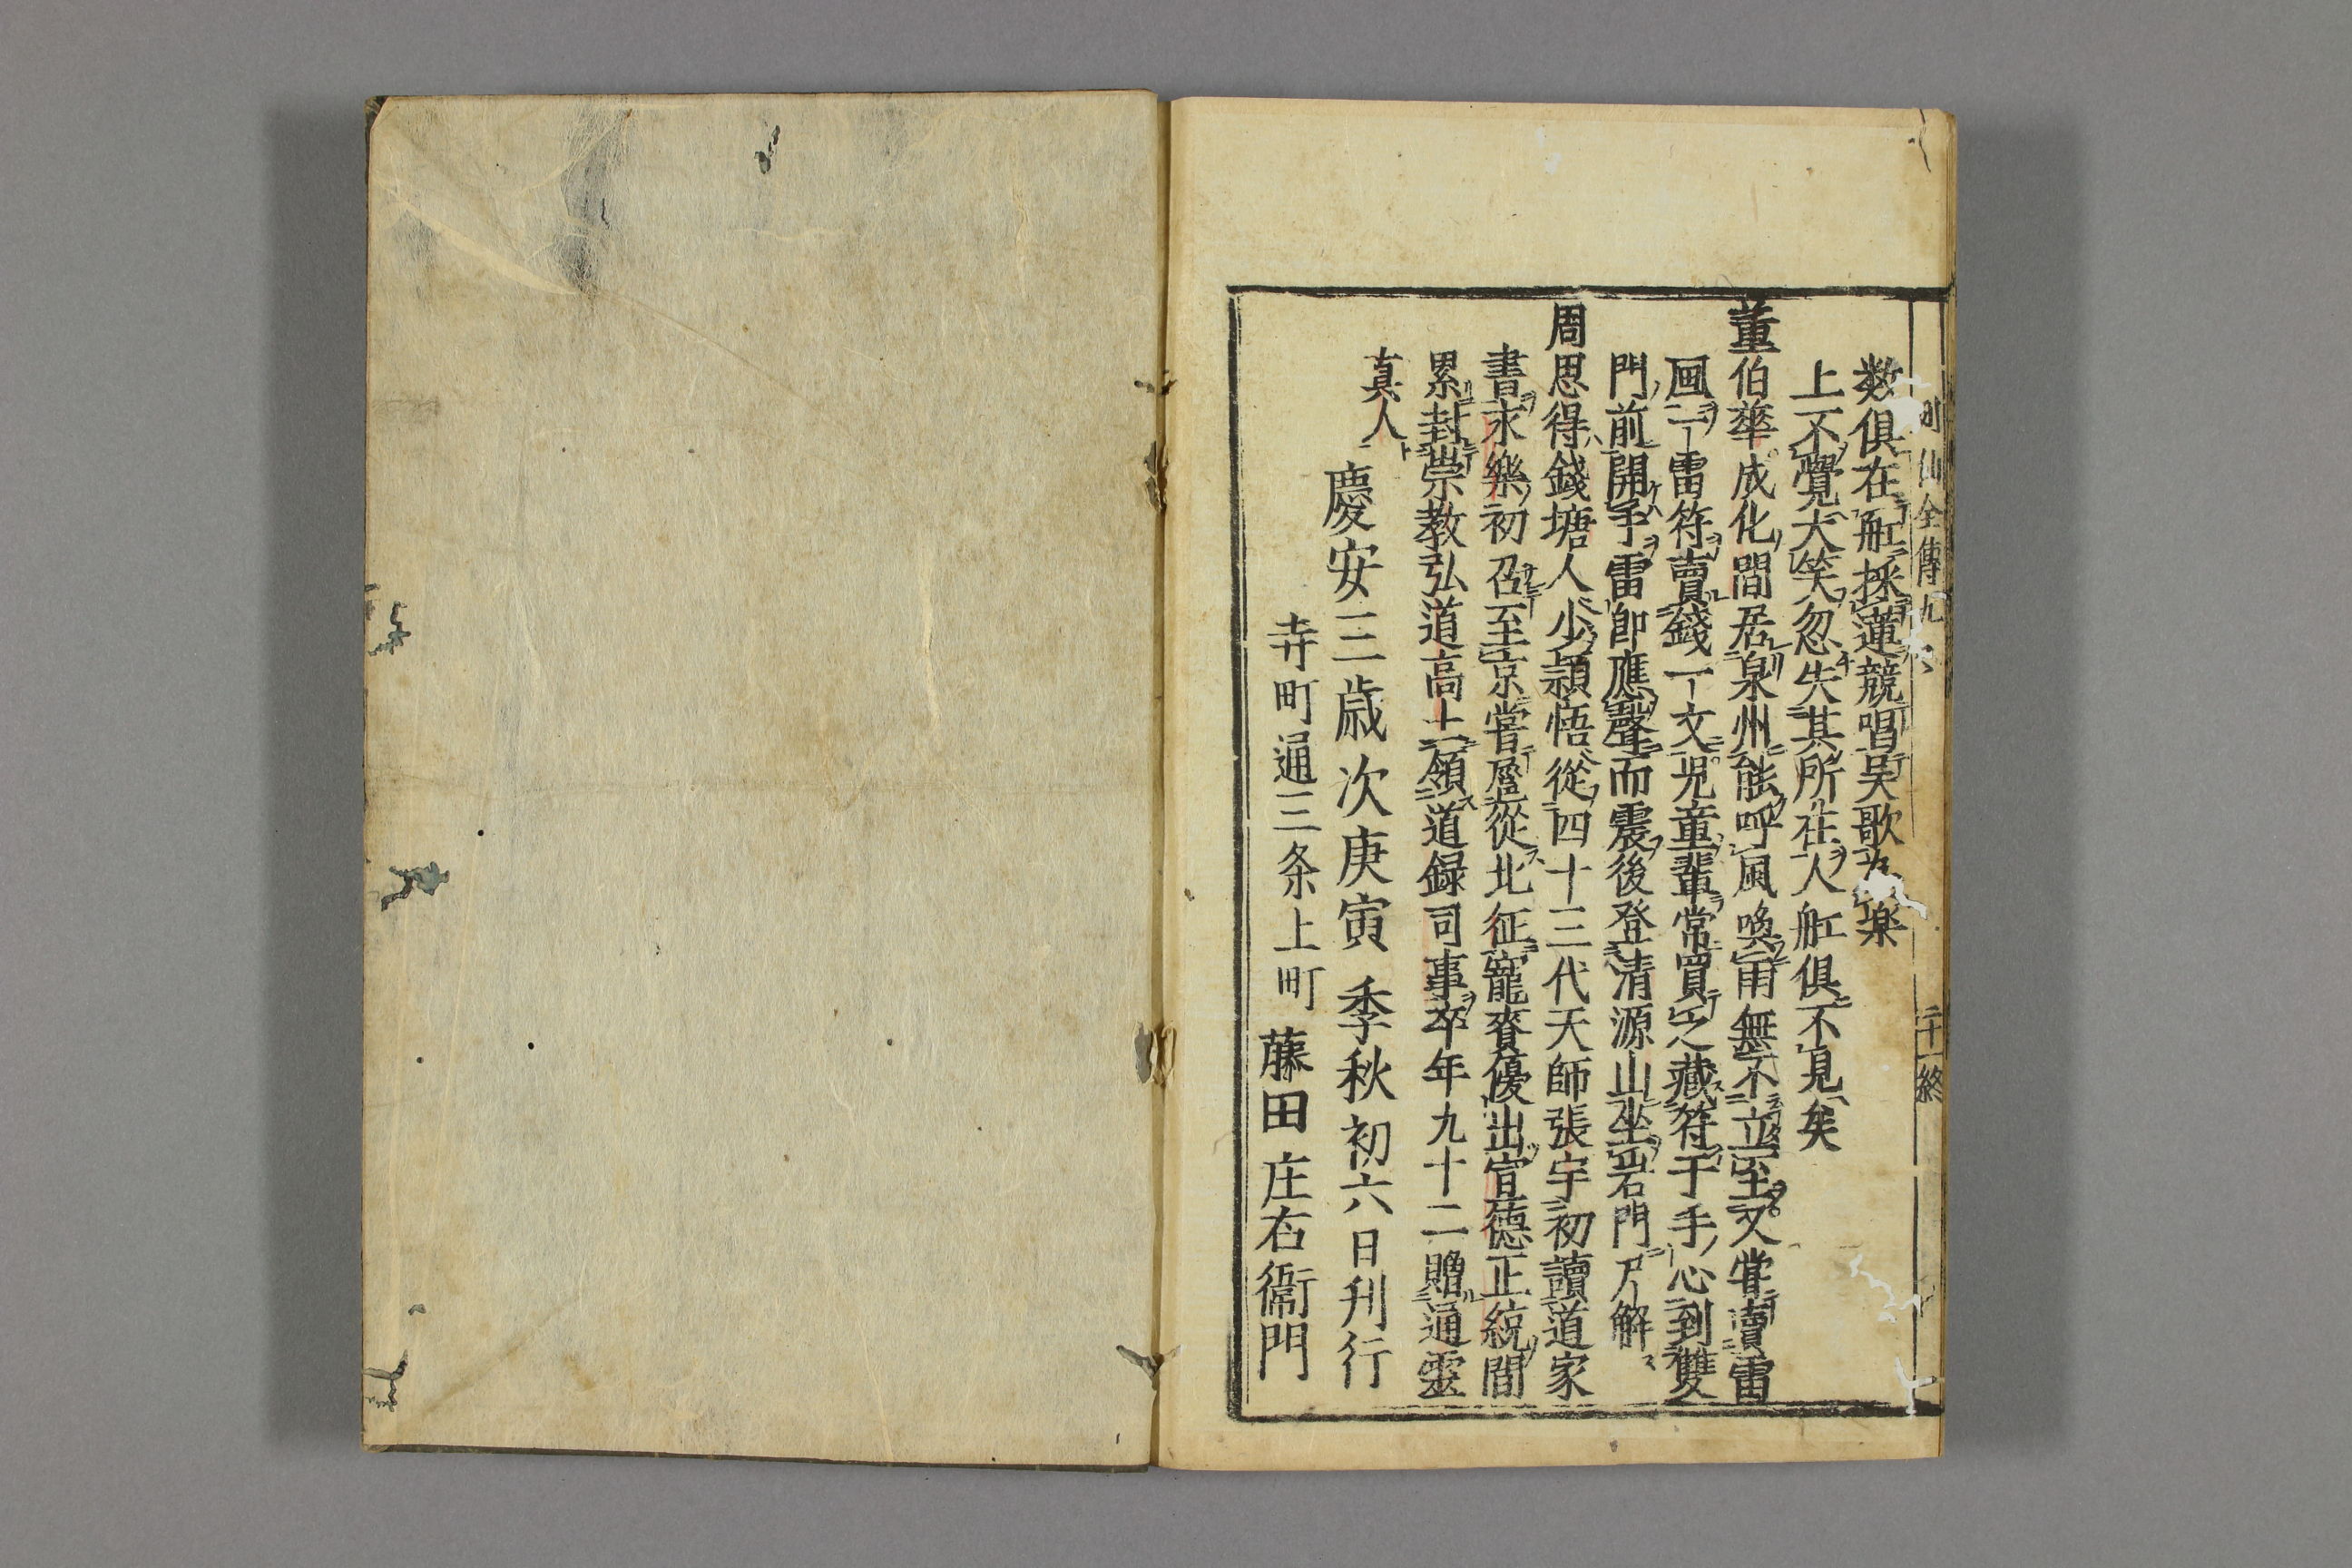 列仙全傳九
二十一終
数俱在舡採蓮競唱吴歌為楽
上不覺大笑忽失其所在人舡俱不見矣
董伯華成化間居泉州能呼風喚雨無不立至又甞賣雷
画一雷符賣錢一文児童輩常買之藏符于手心到雙
門前開手雷即應聲而震後登清源山坐岩門尸解
周思得錢塘人少頴悟從四十三代天師張宇初讀道家
書永樂初召至京嘗扈從北征寵賚優出官德正統間
累封崇教弘道高士領道録司事卒年九十二贈通靈
真人
慶安三歳次庚寅季秋初六日刋行
寺町通三条上町藤田庄右衛門